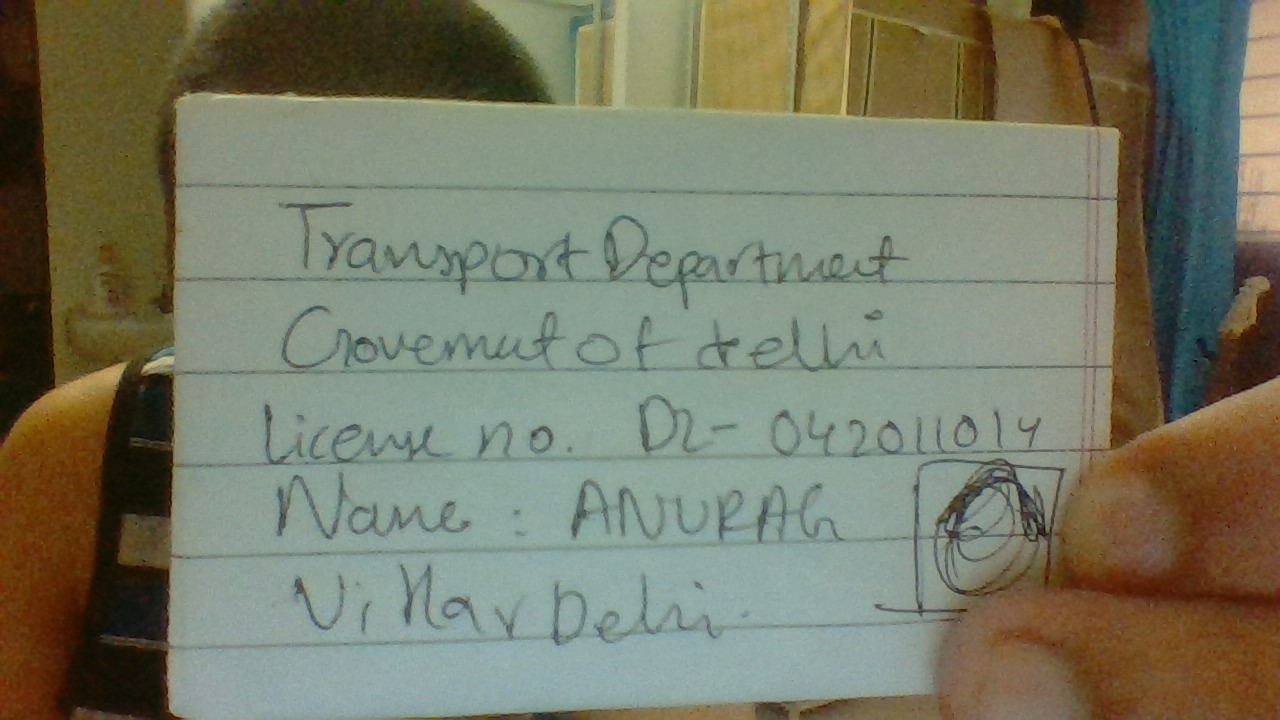 Transport Department
Government of delhi
License no. DL-042011014
Name : ANURAG
Vihar Delhi.